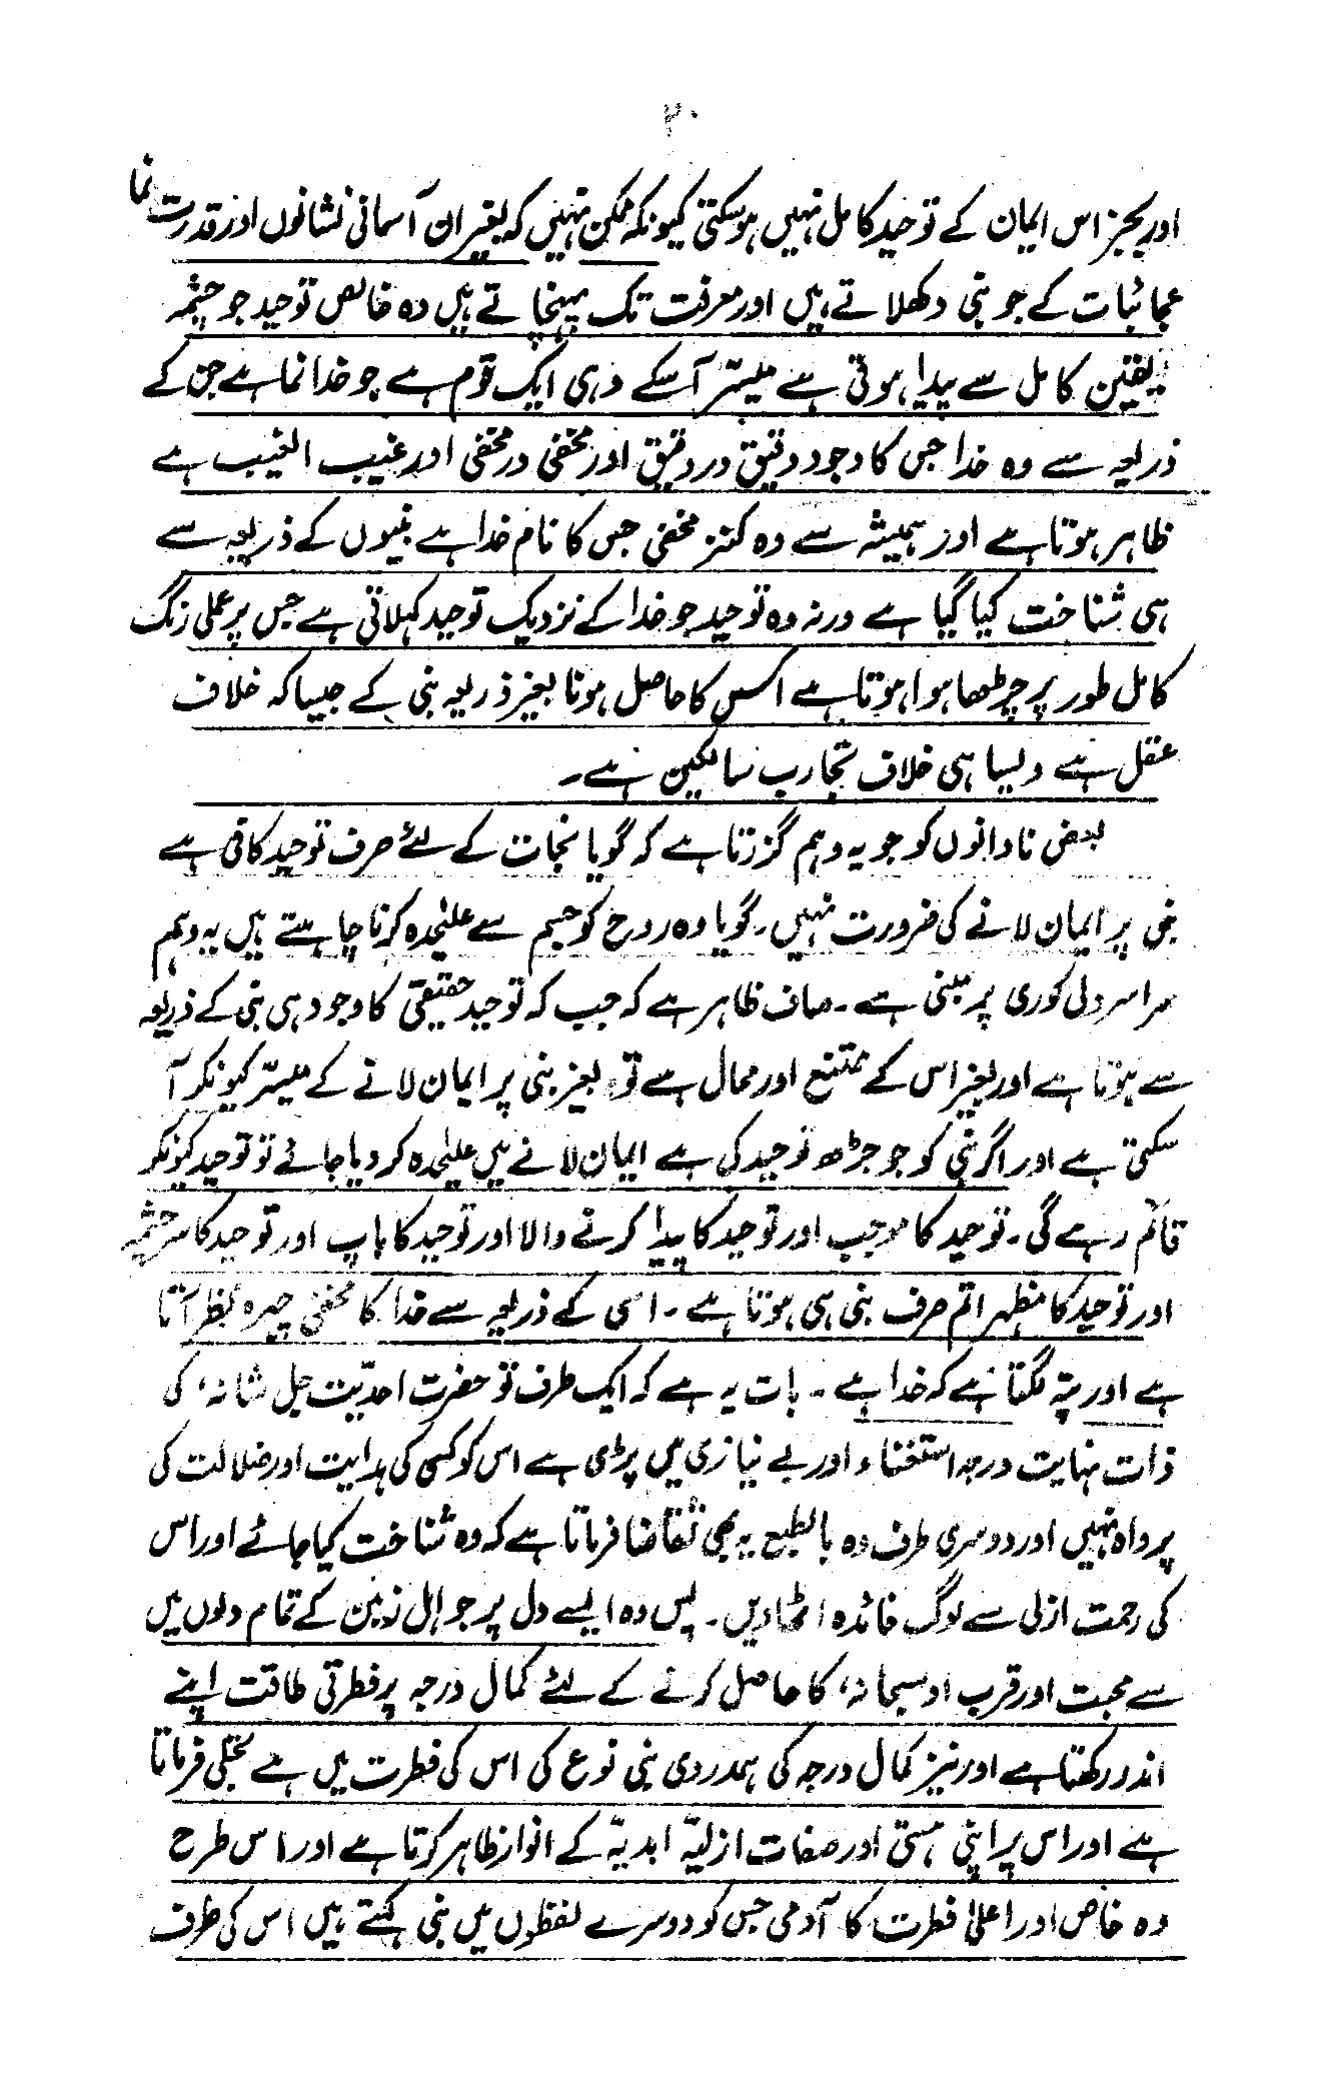 ۲۰
اور بجز اس ایمان کے توحید کامل نہیں ہو سکتی کیونکہ ممکن نہیں کہ بغیر ان آسمانی نشانوں اور قدرت نما
عجائبات کے جو نبی دکھلاتے ہیں اور معرفت تک پہنچاتے ہیں وہ خالص توحید جو چشمہ
یقین کامل سے پیدا ہوتی ہے میسّر آسکے وہی ایک قوم ہے جو خدا نما ہے جن کے
ذریعہ سے وہ خدا جس کا وجود دقیق در دقیق اور مخفی در مخفی اور غیب الغیب ہے
ظاہر ہوتا ہے اور ہمیشہ سے وہ کنز مخفی جس کا نام خدا ہے نبیوں کے ذریعہ سے
ہی شناخت کیا گیا ہے ورنہ وہ توحید جو خدا کے نزدیک توحید کہلاتی ہے جس پر عملی رنگ
کامل طور پر چڑھا ہوا ہوتا ہے اس کا حاصل ہونا بغیر ذریعہ نبی کے جیسا کہ خلاف
عقل ہے ویسا ہی خلاف تجارب سالکین ہے۔
بعض نادانوں کو جو یہ وہم گزرتا ہے کہ گویا نجات کے لئے صرف توحید کافی ہے
نبی پر ایمان لانے کی ضرورت نہیں۔ گویا وہ روح کو جسم سے علیٰحدہ کرنا چاہتے ہیں یہ وہم
سراسر دلی کوری پر مبنی ہے۔ صاف ظاہر ہے کہ جب کہ توحید حقیقی کا وجود ہی نبی کے ذریعہ
سے ہوتا ہے اور بغیر اس کے ممتنع اور محال ہے تو بغیر نبی پر ایمان لانے کے میسّر کیونکر آ
سکتی ہے اور اگر نبی کو جو جڑھ توحید کی ہے ایمان لانے میں علیٰحدہ کر دیا جائے تو توحید کیونکر
قائم رہے گی۔ توحید کا موجب اور توحید کا پیدا کرنے والا اور توحید کا باپ اور توحید کا سرچشمہ
اور توحید کا مظہر اتم صرف نبی ہی ہوتا ہے۔ اسی کے ذریعہ سے خدا کا مخفی چہرہ نظر آتا
ہے اور پتہ لگتا ہے کہ خدا ہے۔ بات یہ ہے کہ ایک طرف تو حضرت احدیّت جل شانہ، کی
ذات نہایت درجہ استغناء اور بے نیازی میں پڑی ہے اس کو کسی کی ہدایت اور ضلالت کی
پرواہ نہیں اور دوسری طرف وہ بالطبع یہ بھی تقاضا فرماتا ہے کہ وہ شناخت کیا جائے اور اس
کی رحمت ازلی سے لوگ فائدہ اٹھاویں۔ پس وہ ایسے دل پر جو اہل زمین کے تمام دلوں میں
سے محبت اور قرب او سبحانہ، کا حاصل کرنے کے لئے کمال درجہ پر فطرتی طاقت اپنے
اندر رکھتا ہے اور نیز کمال درجہ کی ہمدردی بنی نوع کی اس کی فطرت میں ہے تجلی فرماتا
ہے اور اس پر اپنی ہستی اور صفات ازلیّہ ابدیّہ کے انوار ظاہر کرتا ہے اور اس طرح
وہ خاص اور اعلیٰ فطرت کا آدمی جس کو دوسرے لفظوں میں نبی کہتے ہیں اس کی طرف